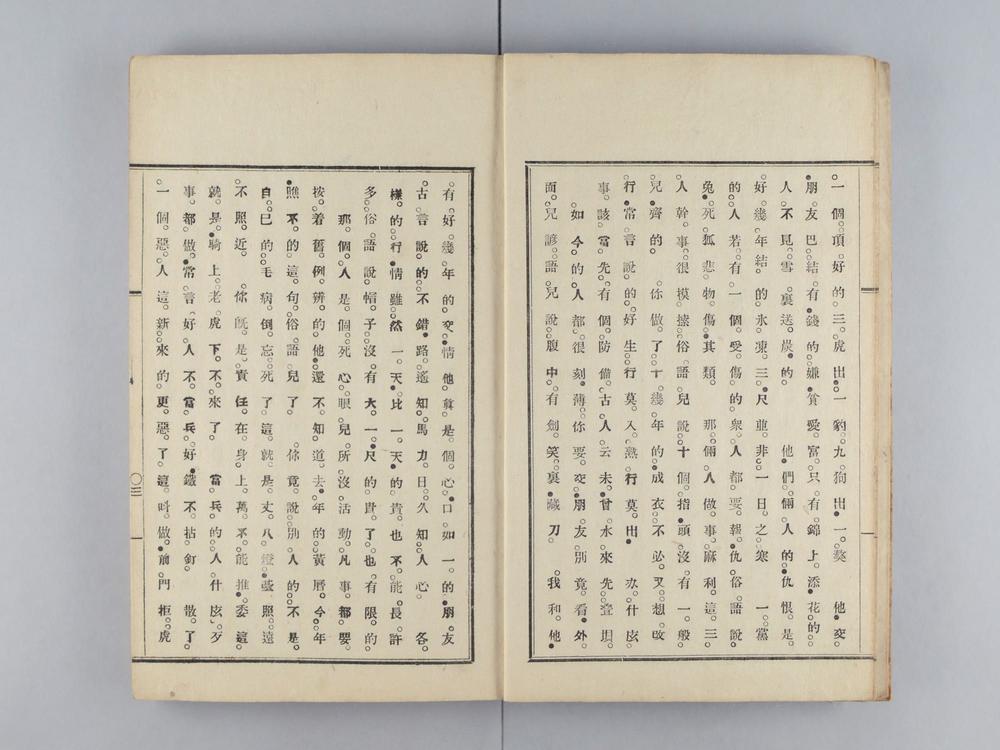 一個頂好的三虎出一豹九狗出一獒　他交
朋友巴結有錢的嫌貧愛富只有錦上添花的
人不見雪裏送炭的　他們倆人的仇恨是
好幾年結的氷凍三尺並非一日之寒　一黨
的人若有一個受傷的衆人都要報仇俗語說
兔死狐悲物傷其類　那倆人做事麻利這三
人幹事很摸搽俗語兒說十個指頭沒有一般
兒齊的　你做了十幾年的成衣不必又想改
行常言說的好生行莫入熟行莫出　办什庅
事該當先有個防備古人云未曾水來先壘垻
如今的人都很刻薄你要交朋友別竟看外
面兒諺語兒說腹中有劍笑裏藏刀　我和他
有好幾年的交情他眞是個心口如一的朋友
古言說的不錯路遙知馬力日久知人心　各
樣的行情雖然一天比一天的貴也不能長許
多俗語說帽子沒有大一尺的貴了也有限的
那個人是個死心眼兒所沒活動凡事都要
按着舊例辨的他還不知道去年的黃曆今年
瞧不的這句俗語兒了　你竟說別人的不是
自己的毛病倒忘死了這就是丈八燈臺照遠
不照近　你旣是責任在身上萬不能推委這
就是騎上老虎下不來了　當兵的人什庅歹
事都做常言好人不當兵好鐵不拈釘　散了
一個惡人這新來的更惡了這呌做前門拒虎
〇三